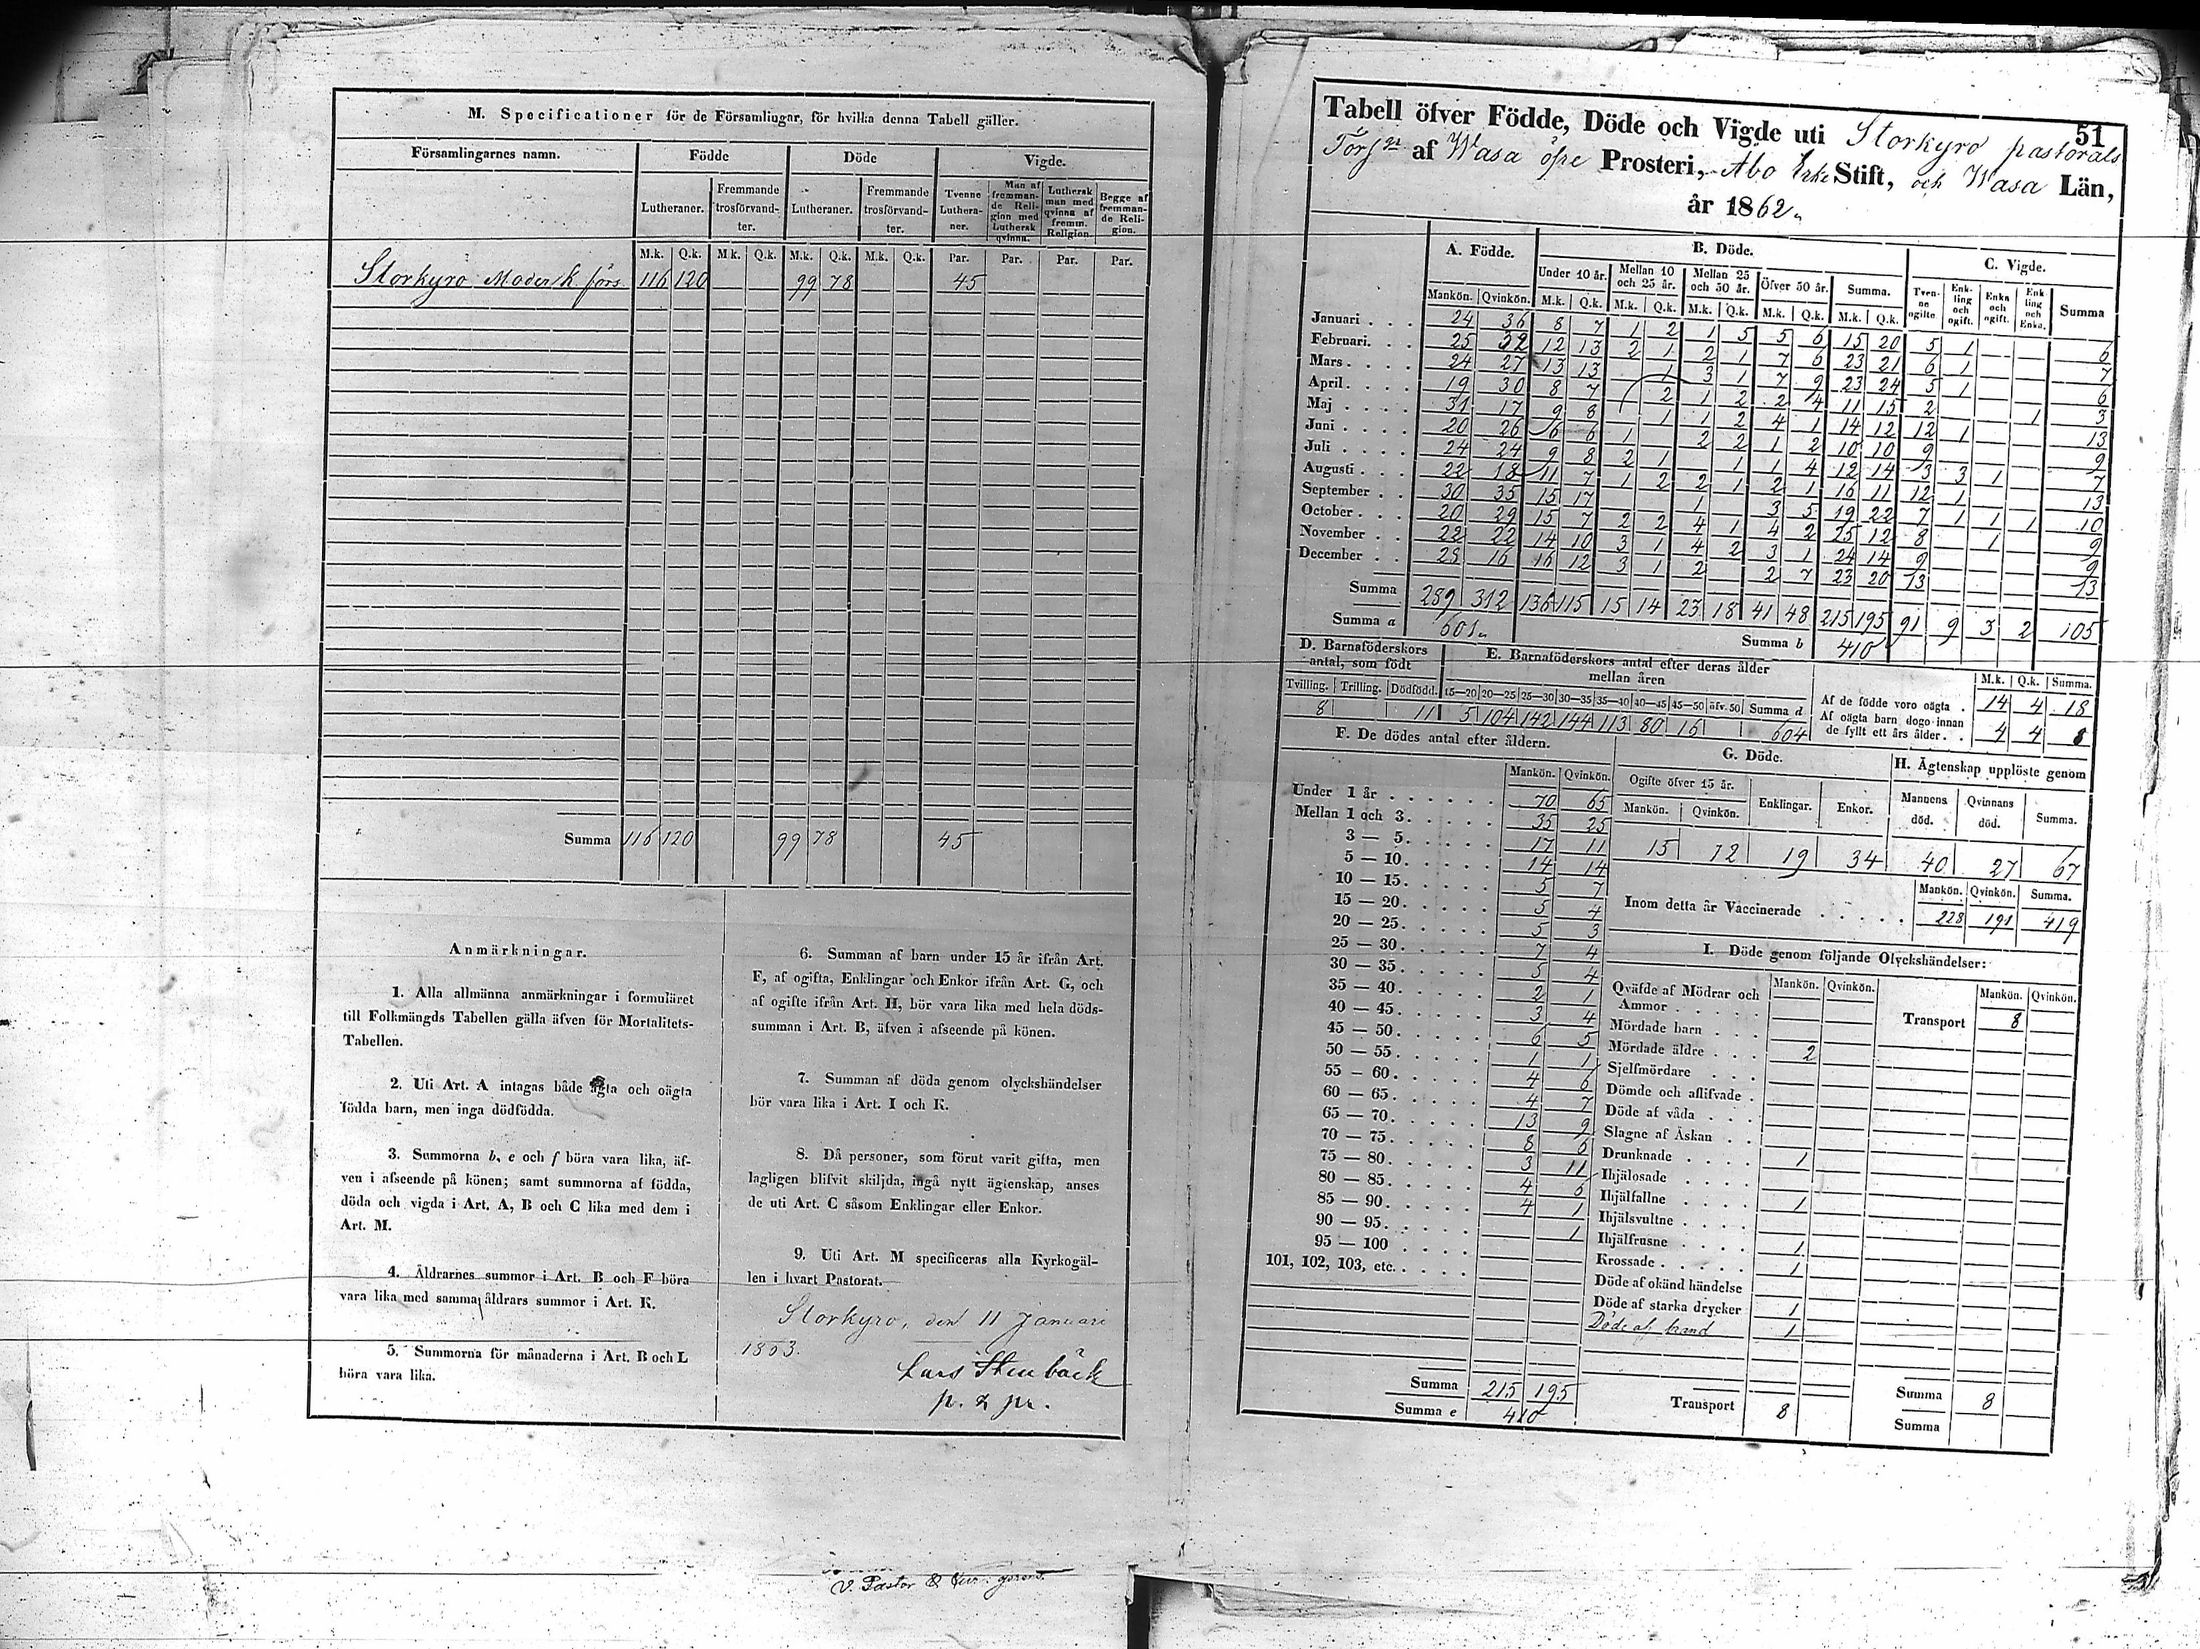 M. Specificationer för de Församlingar, för hvilka denna Tabell gäller.
Församlingarnes namn. Födde Döde Vigde.
Lutheraner. Fremmande trosförvandter. Lutheraner. Fremmande trosförvandter. Tvenne Lutheraner. Man af fremmande Religion med Luthersk qvinna. Luthersk man med qvinna af fremm. Religion. Begge af fremmande Religion.
M.k. Q.k. M.k. Q.k. M.k. Q.k. M.k. Q.k. Par. Par. Par. Par.
Storkyro Moderk. förs 116 120 99 78 45
Summa 116 120 99 78 45
Anmärkningar.
1. Alla allmänna anmärkningar i formuläret
till Folkmängds Tabellen gälla äfven för Mortalitets-
Tabellen.
2. Uti Art. A intagas både ägta och oägta
födda barn, men inga dödfödda.
3. Summorna b, e och f böra vara lika, äf-
ven i afseende på könen; samt summorna af födda,
döda och vigda i Art. A, B och C lika med dem i
Art. M.
4. Åldrarnes summor i Art. B och F böra
vara lika med samma åldrars summor i Art. K.
5. Summorna för månaderna i Art. B och L
böra vara lika.
6. Summan af barn under 15 år ifrån Art.
F, af ogifta, Enklingar och Enkor ifrån Art. G, och
af ogifte ifrån Art. H, bör vara lika med hela döds-
summan i Art. B, äfven i afseende på könen.
7. Summan af döda genom olyckshändelser
bör vara lika i Art. I och K.
8. Då personer, som förut varit gifta, men
lagligen blifvit skiljda, ingå nytt ägtenskap, anses
de uti Art. C såsom Enklingar eller Enkor.
9. Uti Art. M specificeras alla Kyrkogäl-
len i hvart Pastorat.
Storkyro, den 11 Januari
1863.
Lars Stenbäck
p. & pr.
V. Pastor &
51
Tabell öfver Födde, Döde och Vigde uti Storkyro pastorats
af Wasa öfre Prosteri, Åbo Erke Stift, och Wasa Län,
år 1862.
A. Födde. B. Döde. C. Vigde.
Under 10 år. Mellan 10 och 25 år. Mellan 25 och 50 år. Öfver 50 år. Summa. Tvenne ogifte. Enkling och ogift. Enka och ogift. Enkling och Enka. Summa
Mankön. Qvinkön. M.k. Q.k. M.k. Q.k. M.k. Q.k. M.k. Q.k. M.k. Q.k.
Januari 24 36 8 7 1 2 1 5 5 6 15 20 5 1 6
Februari 25 32 12 13 2 1 2 1 7 6 23 21 6 1 7
Mars 24 27 13 13 1 3 1 7 9 23 24 5 1 6
April 19 30 8 7 2 1 2 2 4 11 15 2 1 3
Maj 31 17 9 8 1 1 2 4 1 14 12 12 1 13
Juni 20 26 6 6 1 2 2 1 2 10 10 9 9
Juli 24 24 9 8 2 1 1 1 4 12 14 3 3 1 7
Augusti 22 18 11 7 1 2 2 1 2 1 16 11 12 1 13
September 30 35 15 17 1 3 5 19 22 7 1 1 1 10
October 20 29 15 7 2 2 4 1 4 2 25 12 8 1 9
November 22 22 14 10 3 1 4 2 3 1 24 14 9 9
December 28 16 16 12 3 1 2 2 7 23 20 13 13
Summa 289 312 136 115 15 14 23 18 41 48 215 195 91 9 3 2 105
Summa a 601 Summa b 410
D. Barnaföderskors antal, som födt
Tvilling. Trilling. Dödfödd.
8 11
E. Barnaföderskors antal efter deras ålder mellan åren
15—20 20—25 25—30 30—35 35—40 40—45 45—50 öfv. 50 Summa d
5 104 142 144 113 80 16 604
M.k. Q.k. Summa.
Af de födde voro oägta 14 4 18
Af oägta barn dogo innan
de fyllt ett års ålder 4 4 8
F. De dödes antal efter åldern.
Mankön. Qvinkön.
Under 1 år 70 65
Mellan 1 och 3 35 25
3 — 5 17 11
5 — 10 14 14
10 — 15 5 7
15 — 20 5 4
20 — 25 5 3
25 — 30 7 4
30 — 35 5 4
35 — 40 2 1
40 — 45 3 4
45 — 50 6 5
50 — 55 1 1
55 — 60 4 6
60 — 65 4 7
65 — 70 13 9
70 — 75 8 6
75 — 80 3 11
80 — 85 4 6
85 — 90 4 1
90 — 95 1
95 — 100
101, 102, 103, etc.
Summa 215 195
Summa e 410
G. Döde.
Ogifte öfver 15 år. Enklingar. Enkor.
Mankön. Qvinkön.
15 12 19 34
H. Ägtenskap upplöste genom
Mannens död. Qvinnans död. Summa.
40 27 67
Mankön. Qvinkön. Summa.
Inom detta år Vaccinerade 228 191 419
I. Döde genom följande Olyckshändelser:
Mankön. Qvinkön. Mankön. Qvinkön.
Qväfde af Mödrar och
Ammor
Transport 8
Mördade barn
Mördade äldre 2
Sjelfmördare
Dömde och aflifvade
Döde af våda
Slagne af Åskan
Drunknade 1
Ihjälosade
Ihjälfallne 1
Ihjälsvultne
Ihjälfrusne 1
Krossade 1
Döde af okänd händelse
Döde af starka drycker 1
Döde af brand 1
Transport 8 Summa 8
Summa